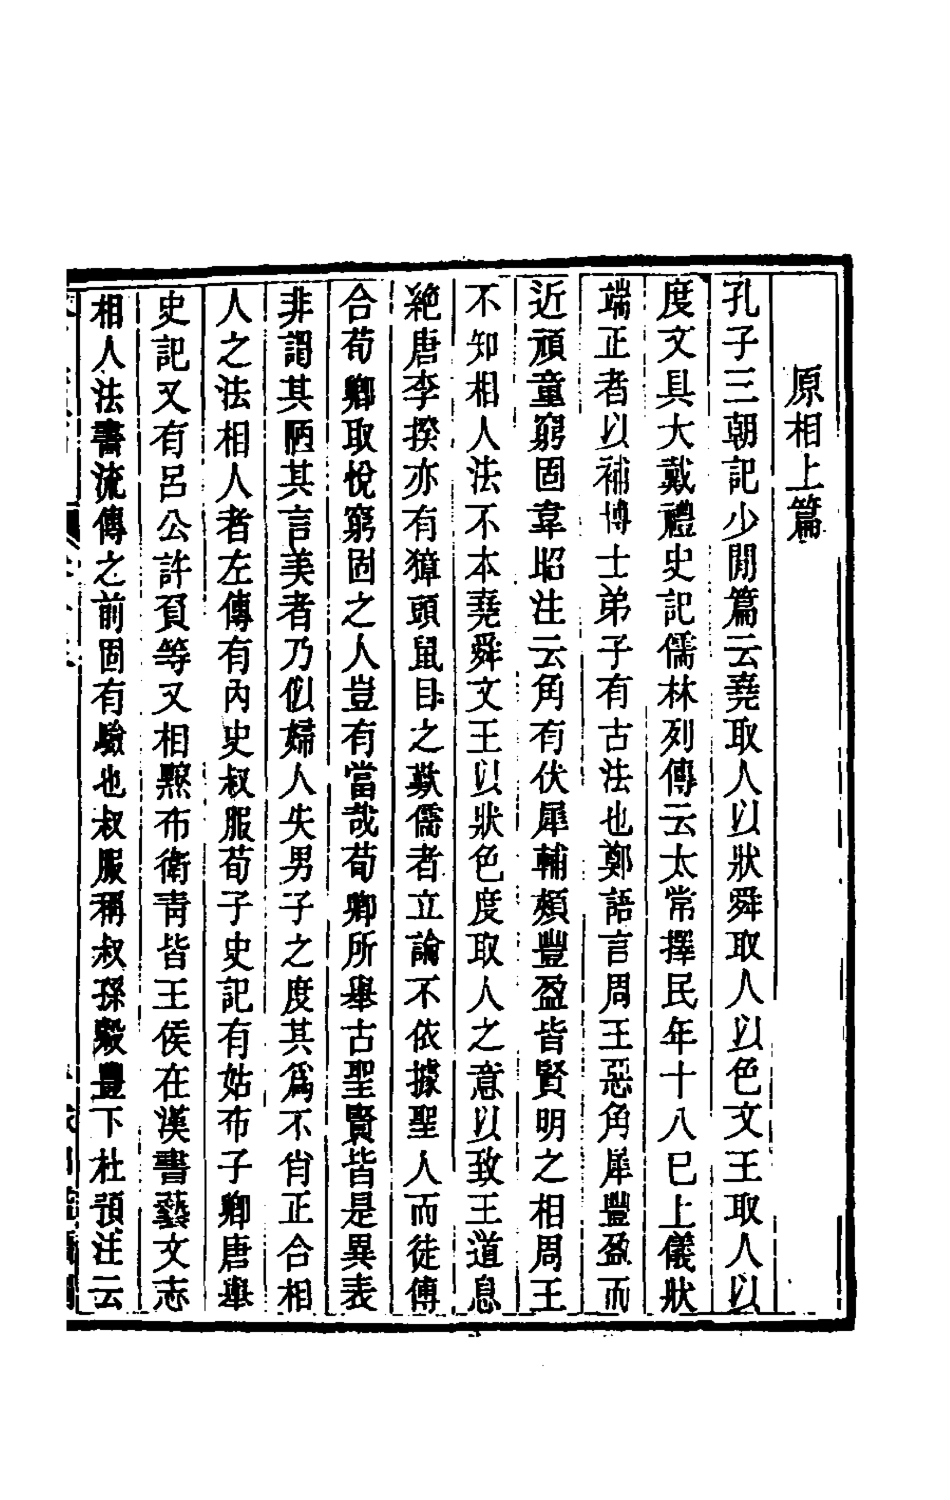 原相上篇
孔子三朝記少閒篇云堯取人以狀舜取人以色文王取人以
度文具大戴禮史記儒林列傳云太常擇民年十八已上儀狀
端正者以補博士弟子有古法也鄭語言周王惡角犀豐盈而
近頑童窮固韋昭注云角有伏犀輔頰豐盈皆賢明之相周王
不知相人法不本堯舜文王以狀色度取人之意以致王道息
絶唐李揆亦有獐頭鼠目之歎儒者立論不依據聖人而徒傅
合荀卿取悅窮固之人豈有當哉荀卿所舉古聖賢皆是異表
非謂其陋其言美者乃似婦人失男子之度其爲不肖正合相
人之法相人者左傳有內史叔服荀子史記有姑布子卿唐舉
史記又有呂公許負等又相黥布衛靑皆王侯在漢書藝文志
相人法書流傳之前固有驗也叔服稱叔孫穀豐下杜預注云